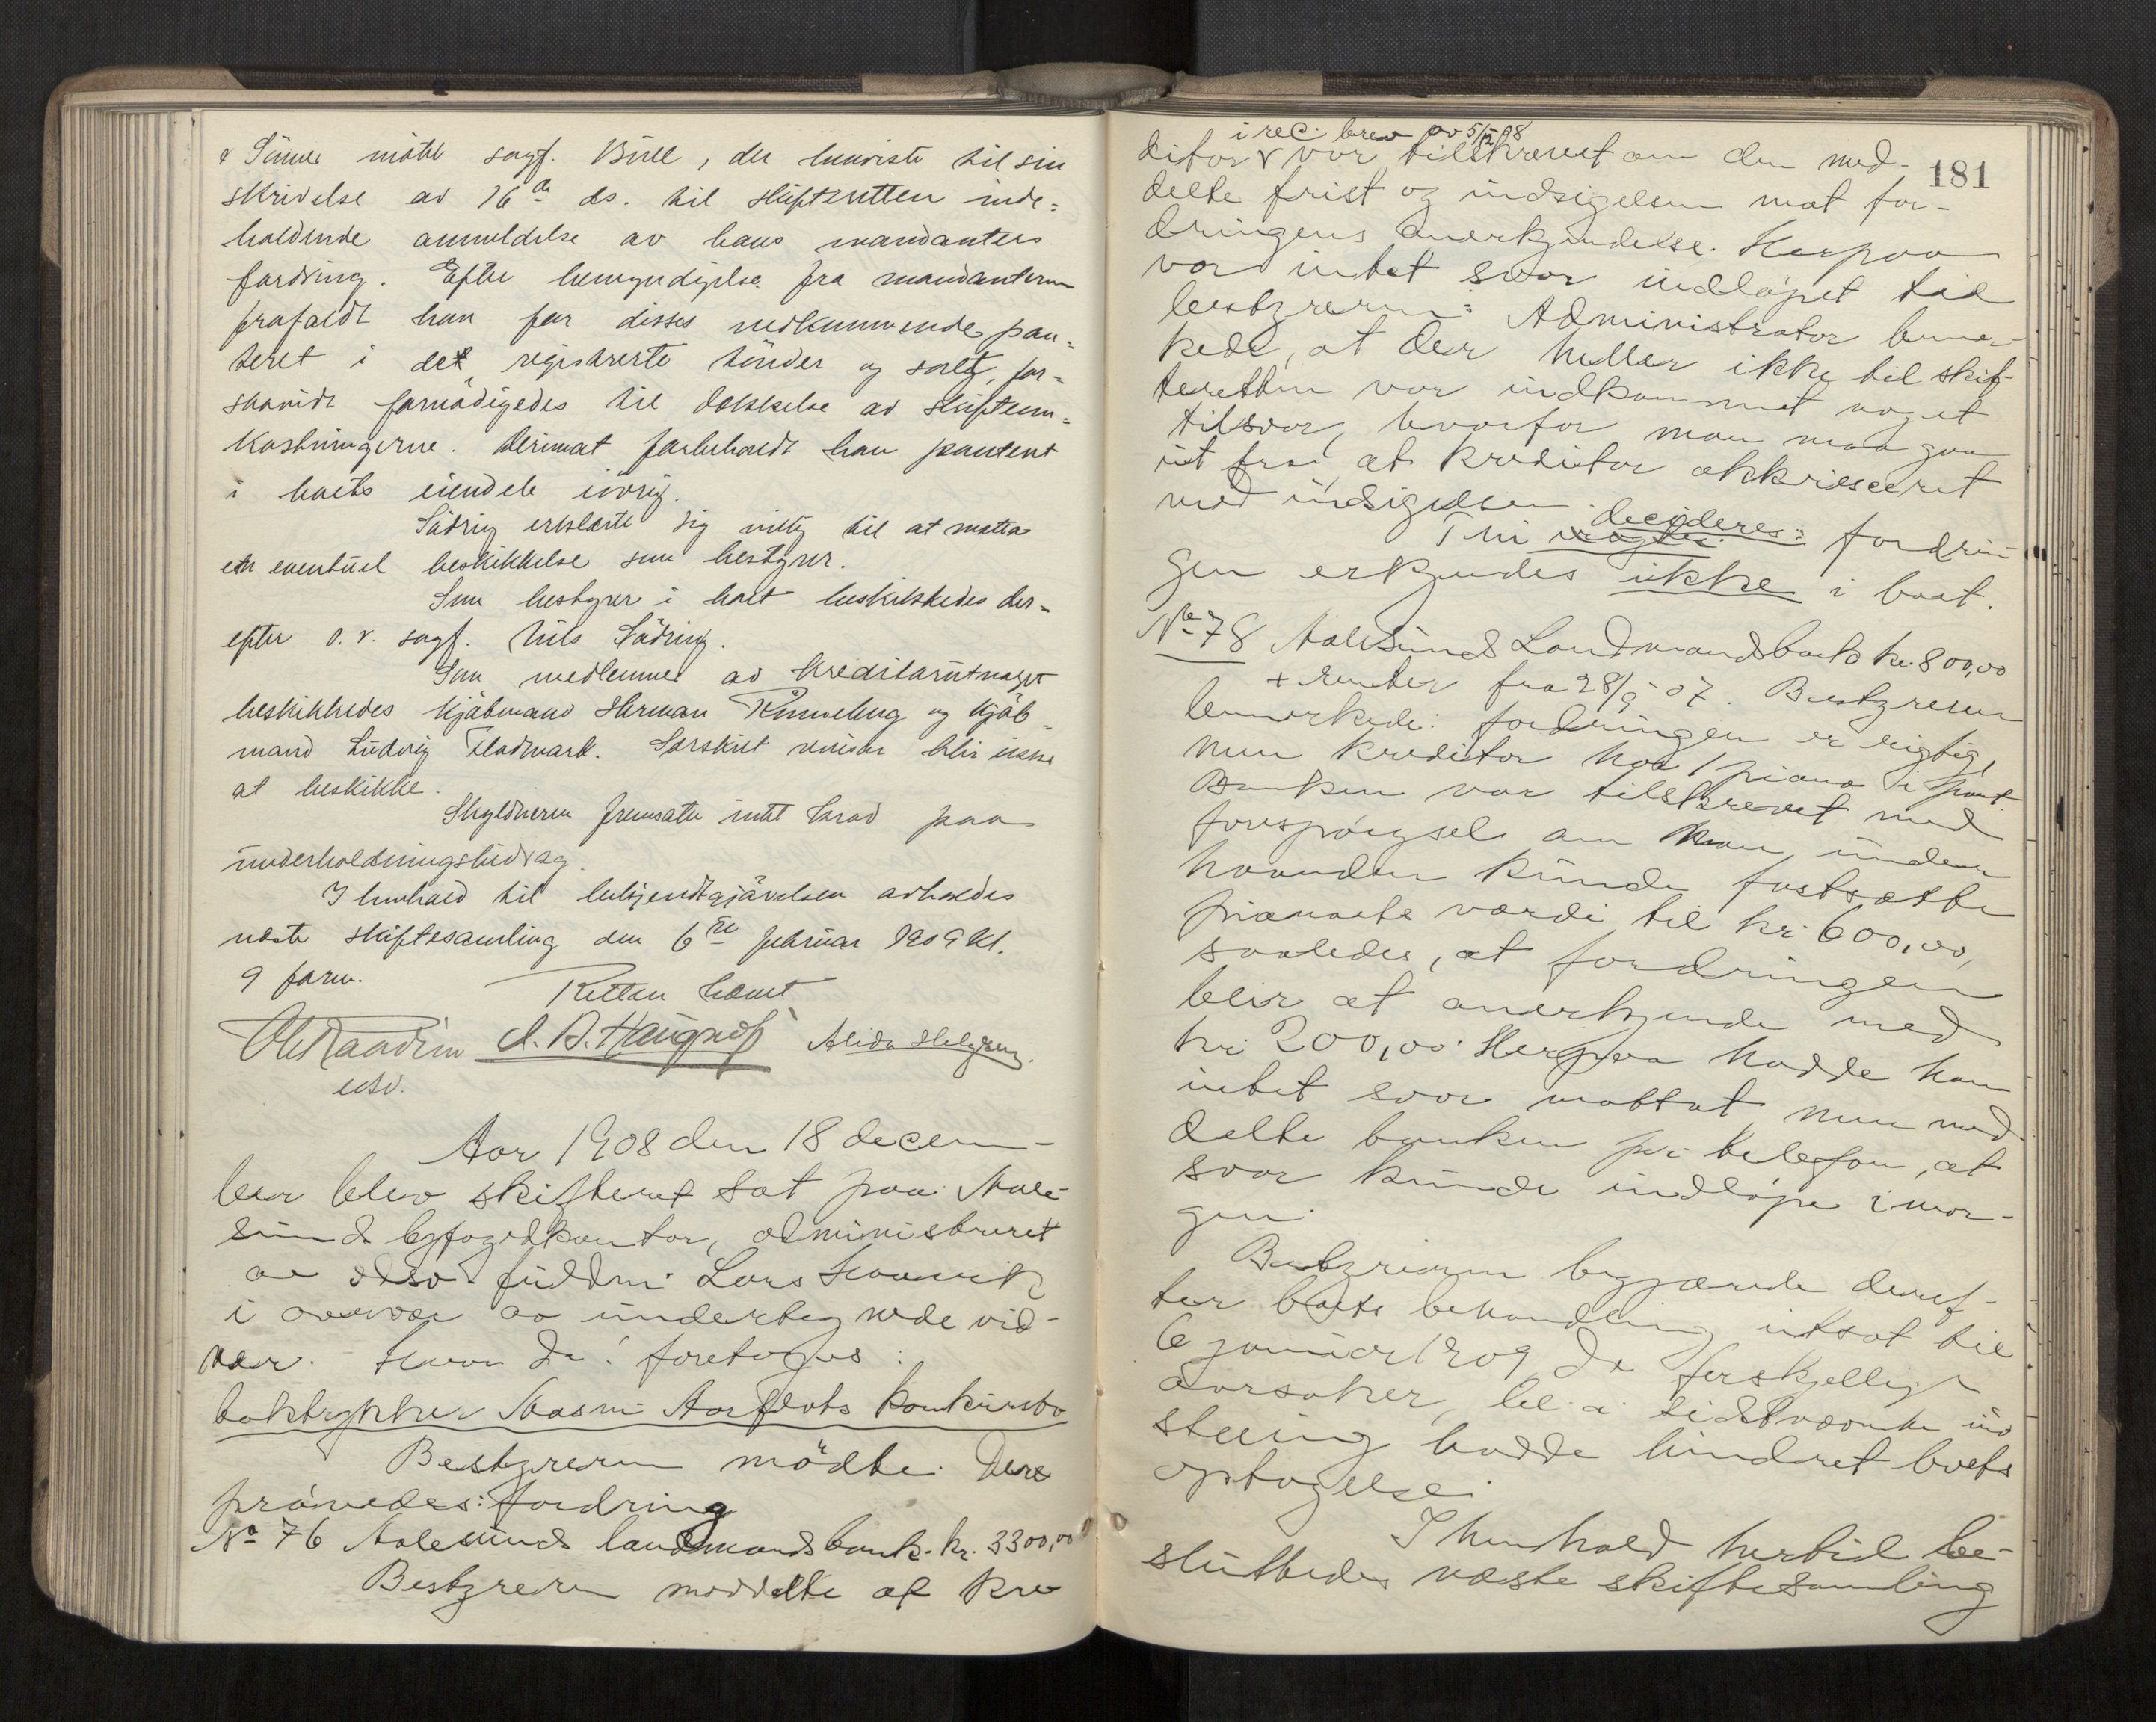 & Sønner mötte sagf. Bull, der henviste til sin
skrivelse av 16de ds. til skifteretten inde=
holdende anmeldelse av hans mandanters
fordring. Efter bemyndigelse fra mandanterne
frafaldt han for disses vedkommende pan=
teret i det registrerte tönder og salt, for=
saavidt fornödigedes til dækkelse av skifteom=
kostningerne. Derimot forbeholdt han panteret
i boets eiendele iövrig.
Södring erklærte sig villig til at motta
en eventuel beskikkelse som bestyrer.
Som bestyrer i boet beskikkedes der=
efter o.r. sagf. Nils Södring.
Som medlemmer av kreditorutvalget
beskikkedes kjöbmand Herman Rönneberg og kjöb=
mand Ludvig Fladmark. Særskilt revisor blir ikke
at beskikke.
Skyldneren fremsatte intet krav paa
underholdningsbidrag.
I henhold til bekjendtgjörelsen avholdes
næste skiftesamling den 6te februar 1909 kl.
9 form.
Retten hævet
Ole Randim A. B. Haugness Alida Helgesen.
cst.
Aar 1908 den 18 decem-
ber blev skifteret sat paa Aale-
sunds byfogedkontor, administreret
av edsv. fuldm. Lars Haavik
i overvær av undertegnede vid-
ner. Hvor da: foretoges:
boktrykker Rasm. Aarflots konkursbo
Bestyreren mödte. Der
prövedes: fordring
No 76 Aalesunds landmandsbank. kr. 3300,00
Bestyreren meddelte at kre
181
i rec. brev av 5/12 08
ditor var tilskrevet om den med-
delte frist og indsigelsen mot for-
dringens anerkjendelse. Herpaa
var intet svar indlöpet til
bestyreren. Administrator bemer-
kede, at der heller ikke til skif-
teretten var indkommet noget
tilsvar, hvorfor man maa gaa
ut fra, at kreditor akkviescerer
ved indsigelsen.
Thi decideres: fordrin-
gen erkjendes ikke i boet.
No 78 Aalesunds Landmandsbank kr. 800,00
+ renter fra 28/9-07. Bestyreren
bemerkede: fordringen er rigtig,
men kreditor har 1 piano i pant.
Banken var tilskrevet med
forespörgsel om man under
haanden kunde fastsætte
pianoets værdi til kr. 600,00,
saaledes, at fordringen
blir at anerkjende med
kr. 200,00. Herpaa hadde han
intet svar mottat, men med-
delte banken pr. telefon, at
svar kunde indlöpe imor-
gen.
Bestyreren begjærede deref-
ter boets behandling utsat til
6 januar 1909 da forskjellige
aarsaker, bl. a. sidstnævnte ind
hadde hindret boets
optagelse.
I henhold hertil be-
sluttedes næste skiftesamling